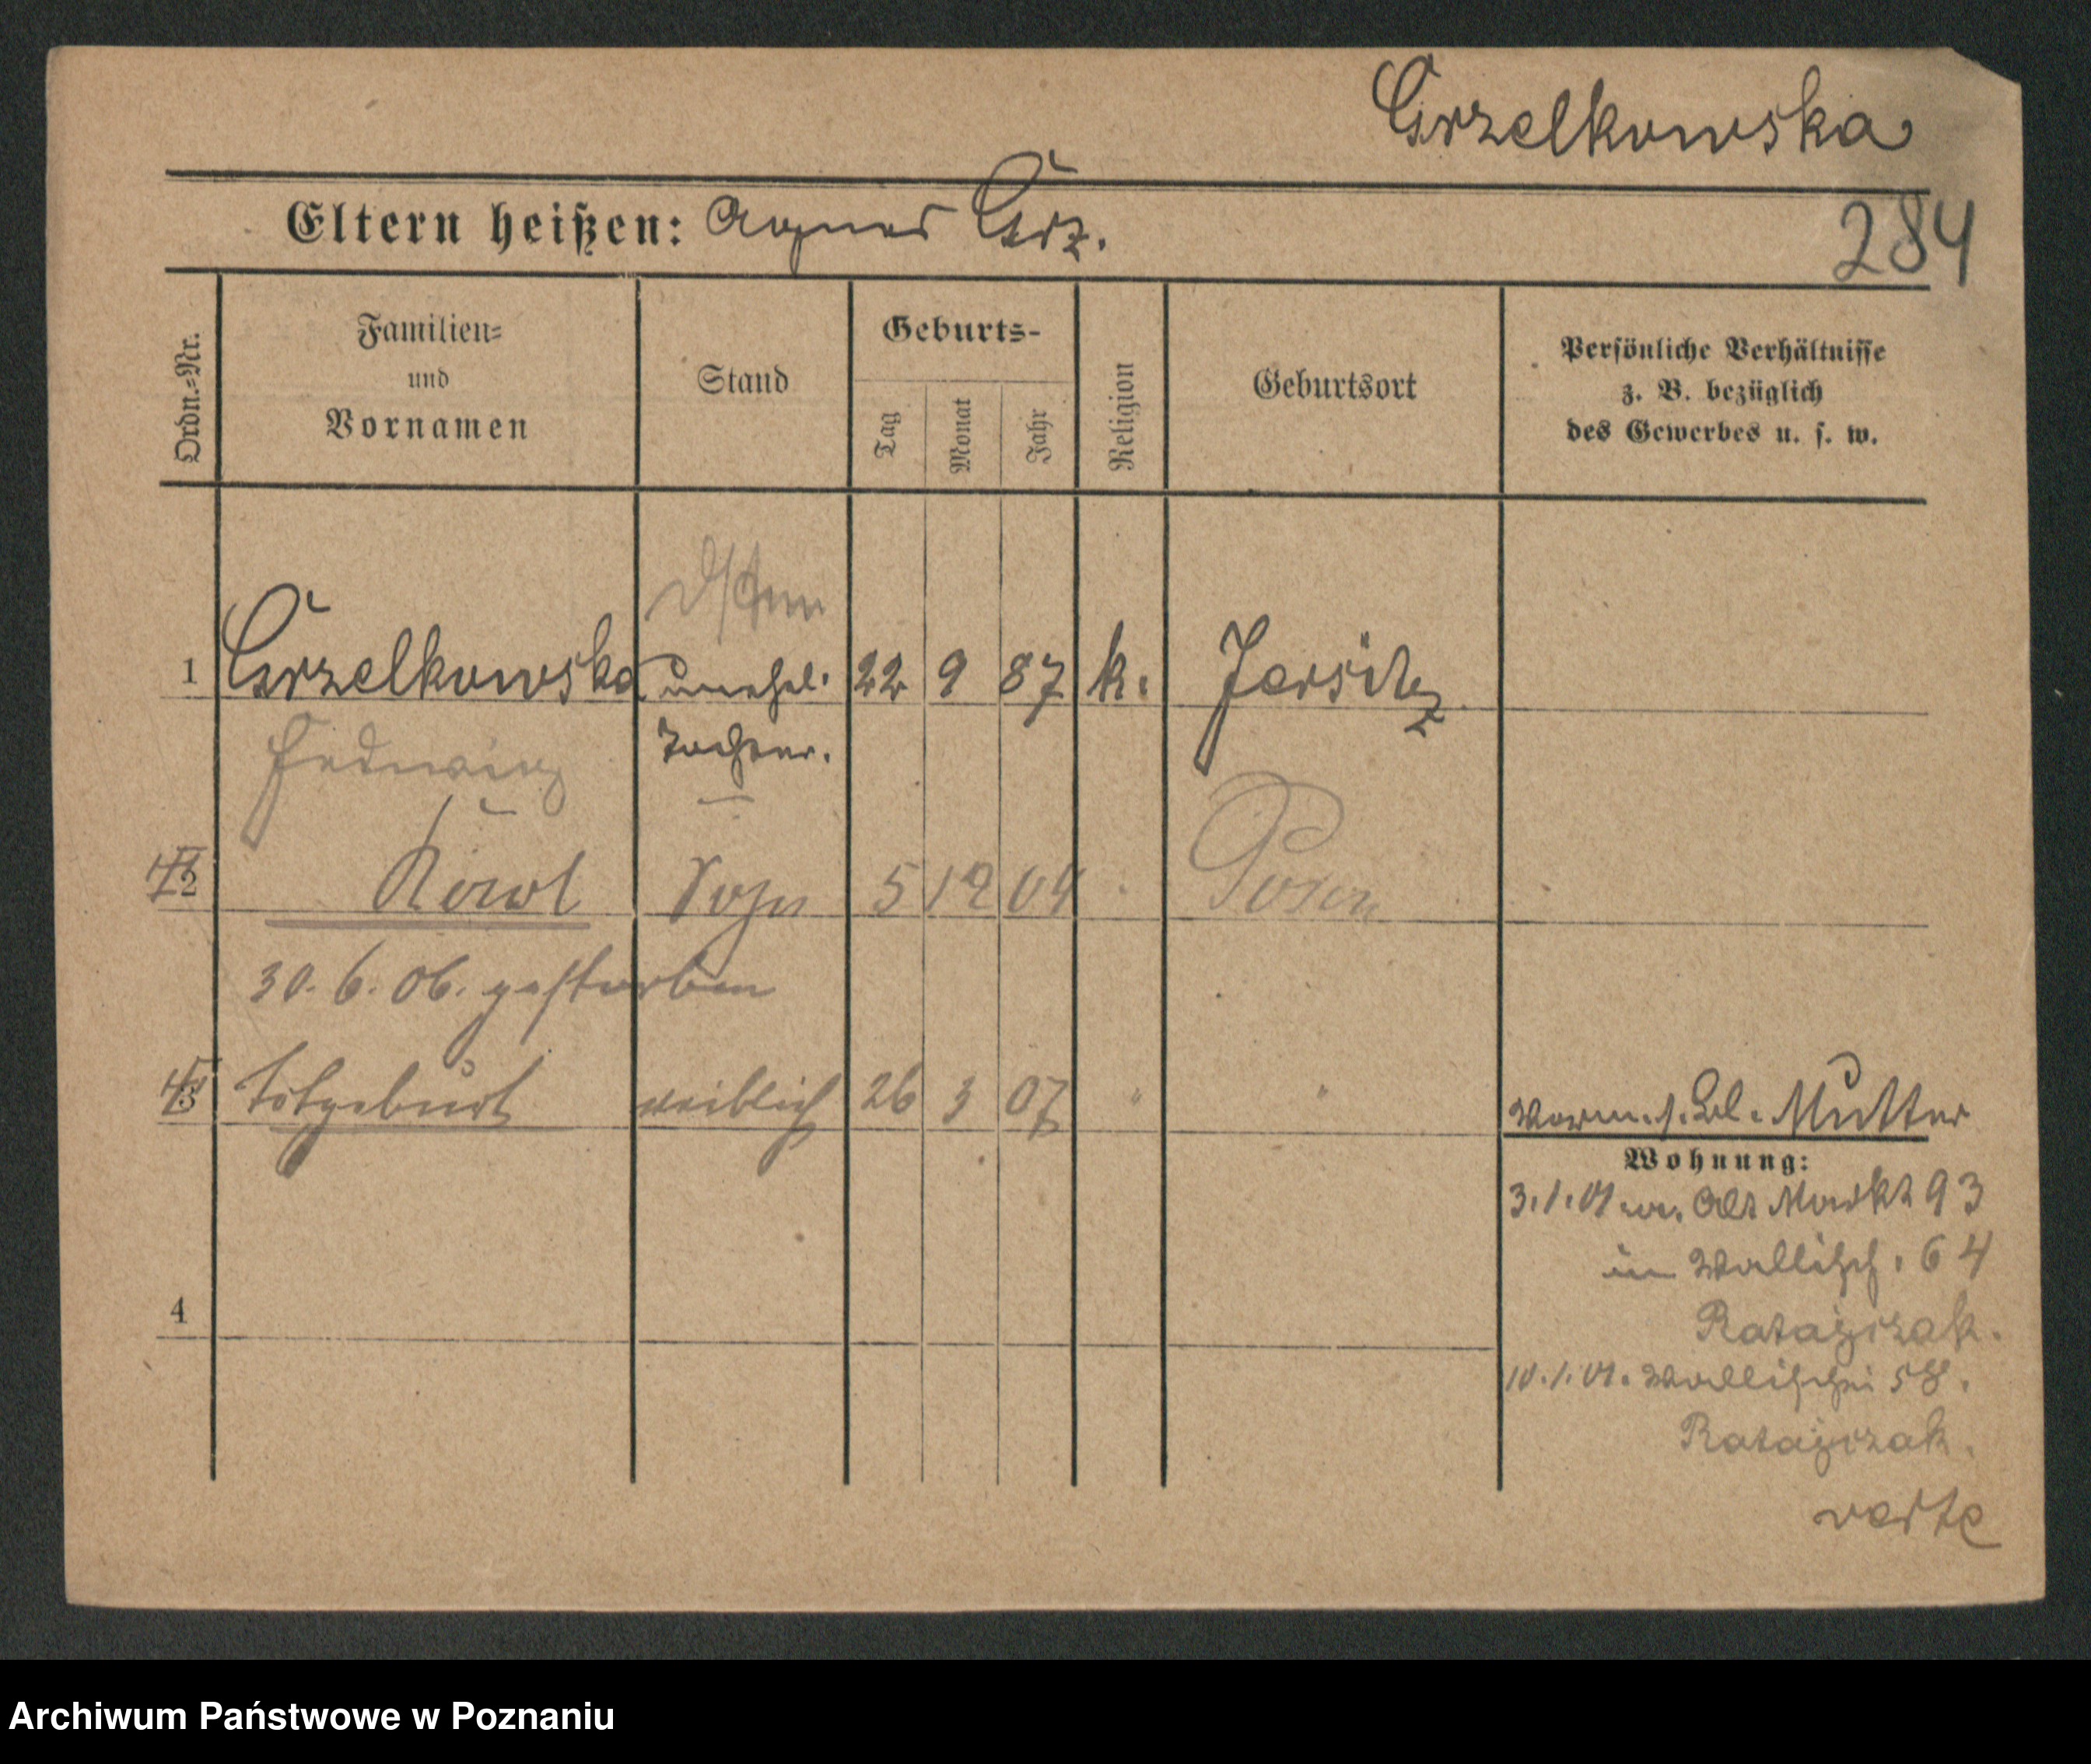 Grzelkowska
Eltern heißen: Agnes Grz.
284
Ordn.=Nr.
Familien=
und
Vornamen
Stand
Geburts-
Tag
Monat
Jahr
Religion
Geburtsort
Persönliche Verhältnisse
z. B. bezüglich
des Gewerbes u. s. w.
1 Grzelkowska unehel. 22 9 87 k. Jersitz
Hedwig Tochter.
2 Karol Sohn 5 12 04 Posen
30. 6. 06. gestorben
3 Totgeburt weiblich 26 3 07 " "
Vorm. s. Bl. Mutter
Wohnung:
3.1.01 Alt Markt 93
in Wallisch. 64
Ratajczak.
10.1.01. Wallischei 58.
Ratajczak.
verte
4
Archiwum Państwowe w Poznaniu